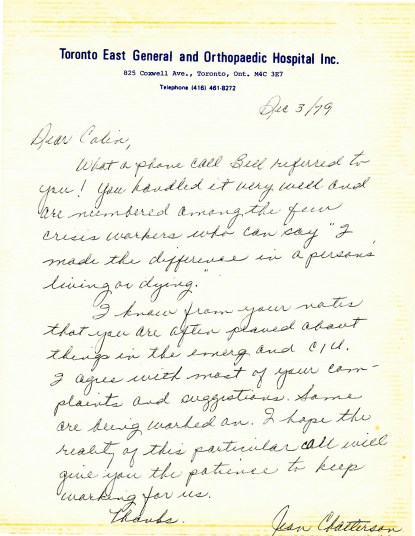 Toronto East General and Orthopaedic Hospital Inc.
825 Coxwell Ave., Toronto, Ont. M4C 3E7
Telephone (416) 461-8272
Dec 3/79
Dear Colin,
What a phone call Bell referred to
you! You handled it very well and
are numbered among the few
crisis workers who can say "I
made the difference in a persons'
living or dying."
I know from your notes
that you are often peaved about
things in the emerg and C/U.
I agree with most of your com-
plaints and suggestions. Some
are being worked on. I hope the
reality of this particular call will
give you the patience to keep
working for us.
Thanks.
Jean Chatterson